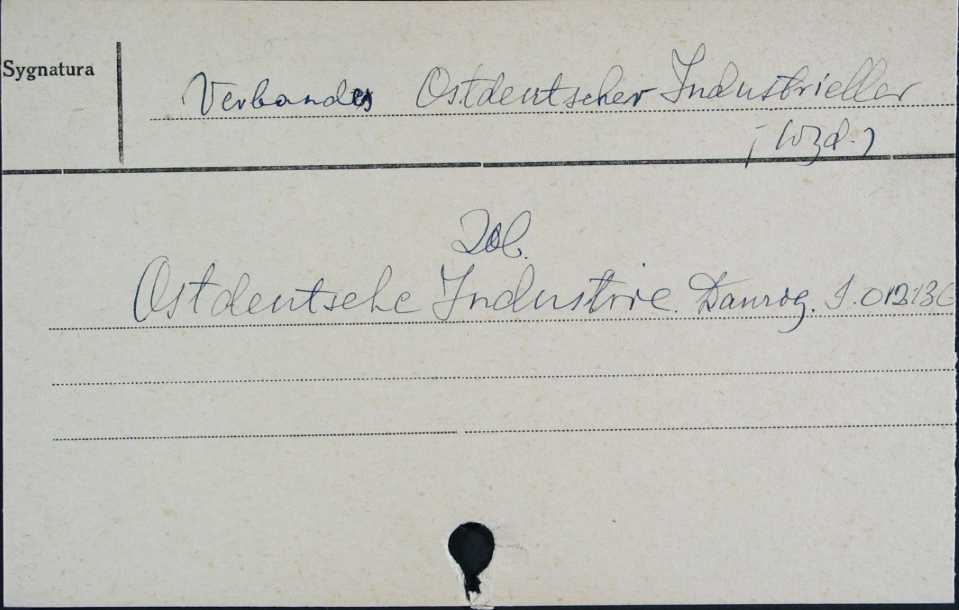 Sygnatura
Verbandes Ostdeutscher Industrieller
(Wyd.)
Zob.
Ostdeutsche Industrie. Danzig. S.01213